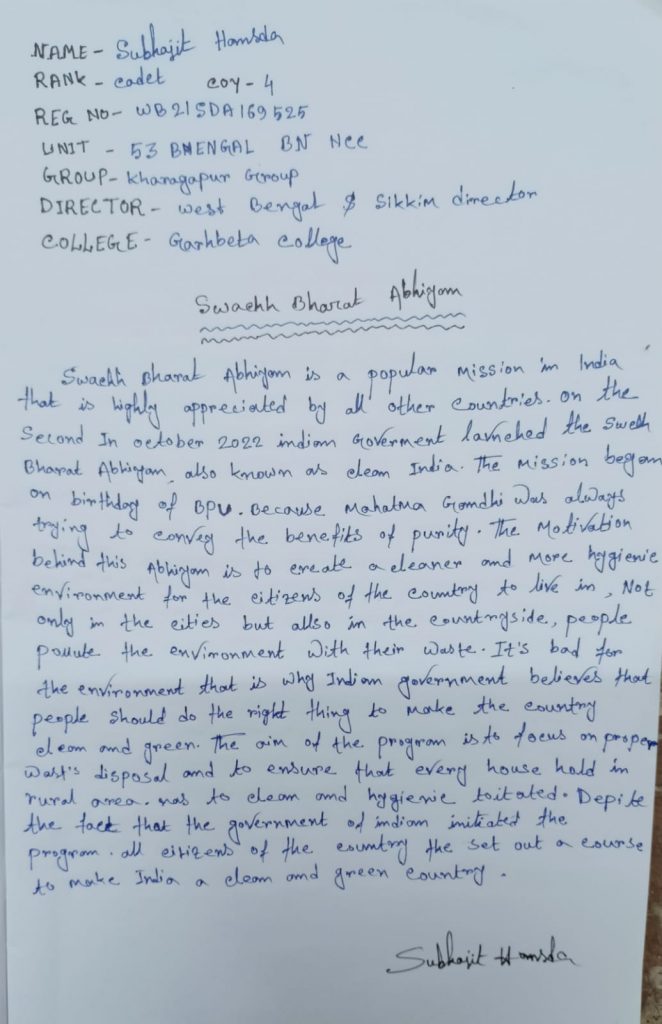 NAME - Subhajit Hamsda
RANK - cadet COY - 4
REG NO - WB21SDA169525
UNIT - 53 BHENGAL BN NCC
GROUP - Kharagapur Group
DIRECTOR - West Bengal & Sikkim director
COLLEGE - Garhbeta College
Swachh Bharat Abhiyan
Swachh Bharat Abhiyan is a popular Mission in India
that is highly appreciated by all other countries. On the
Second In october 2022 indian Goverment launched the Swelh
Bharat Abhiyan, also known as clean India. The Mission began
on birthday of BPU. Because Mahatma Gandhi was always
trying to convey the benefits of purity. The Motivation
behind this Abhiyan is to create a cleaner and More hygienic
environment for the citizens of the country to live in, Not
only in the cities but allso in the countryside, people
pollute the environment with their waste. It's bad for
the environment that is why Indian government believes that
people should do the right thing to Make the country
clean and green. The aim of the program is to focus on proper
Wast's disposal and to ensure that every house hold in
rural area. has to clean and hygienic toitated. Depite
the fact that the government of indian initiated the
program. all citizens of the country the set out a course
to make India a clean and green country.
Subhajit Hamsda